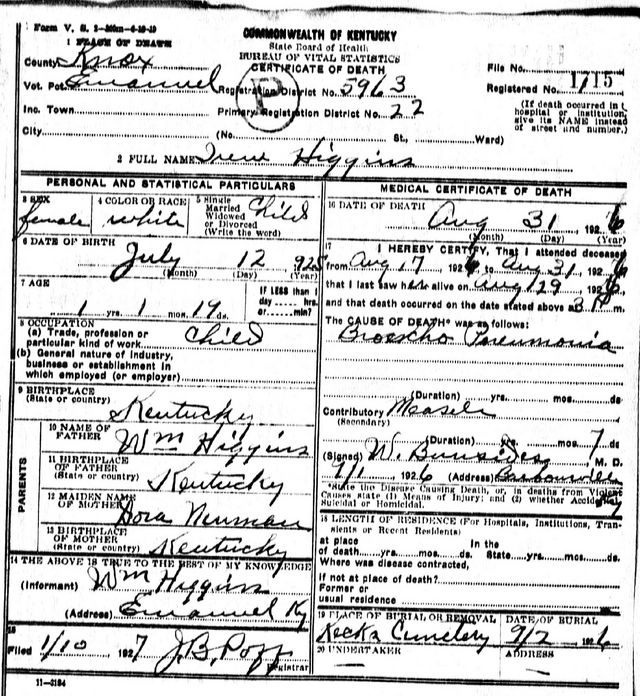 Form V. S.
COMMONWEALTH OF KENTUCKY
State Board of Health
BUREAU OF VITAL STATISTICS
CERTIFICATE OF DEATH
1 PLACE OF DEATH
County Knox
Vot. Pct. Emanuel
Inc. Town
City
Registration District No. 5963
Primary Registration District No. 22
(No. St., Ward)
File No.
Registered No. 1715
(If death occurred in
hospital or institution,
give its NAME instead
of street and number.)
P
2 FULL NAME Irene Higgins
PERSONAL AND STATISTICAL PARTICULARS
3 SEX
female
4 COLOR OR RACE
white
5 Single
Married
Widowed
or Divorced
(Write the word)
Child
6 DATE OF BIRTH
July 12 925
(Month) (Day) (Year)
7 AGE
1 yrs. 1 mos. 19 ds.
IF LESS than 1
day hrs.
or min?
8 OCCUPATION
(a) Trade, profession or
particular kind of work Child
(b) General nature of industry,
business or establishment in
which employed (or employer)
9 BIRTHPLACE
(State or country)
Kentucky
PARENTS
10 NAME OF
FATHER
Wm Higgins
11 BIRTHPLACE
OF FATHER
(State or country)
Kentucky
12 MAIDEN NAME
OF MOTHER
Dora
13 BIRTHPLACE
OF MOTHER
(State or country)
Kentucky
14 THE ABOVE IS TRUE TO THE BEST OF MY KNOWLEDGE
(Informant) Wm Higgins
(Address) Emanuel Ky
15
Filed 1/10 1927 J.B. Popp
Registrar
11-3184
MEDICAL CERTIFICATE OF DEATH
16 DATE OF DEATH
Aug 31 1926
(Month) (Day) (Year)
17 I HEREBY CERTIFY, That I attended deceased
from Aug 17 1926 to Aug 31 1926
that I last saw h alive on Aug 29 1926
and that death occurred on the date stated above at 3 P m.
The CAUSE OF DEATH* was as follows:
Broncho Pneumonia
(Duration) yrs. mos. ds
Contributory
(Secondary)
(Duration) yrs. mos. 7 ds.
(Signed) W. M. D.
1926 (Address)
*State the Disease Causing Death, or, in deaths from Violent
Causes state (1) Means of Injury; and (2) whether Accidental,
Suicidal or Homicidal.
18 LENGTH OF RESIDENCE (For Hospitals, Institutions, Tran-
sients or Recent Residents)
at place In the
of death yrs. mos. ds. State yrs. mos. ds.
Where was disease contracted,
if not at place of death?
Former or
usual residence
19 PLACE OF BURIAL OR REMOVAL
Cemetery
DATE OF BURIAL
9/2 1926
20 UNDERTAKER
ADDRESS